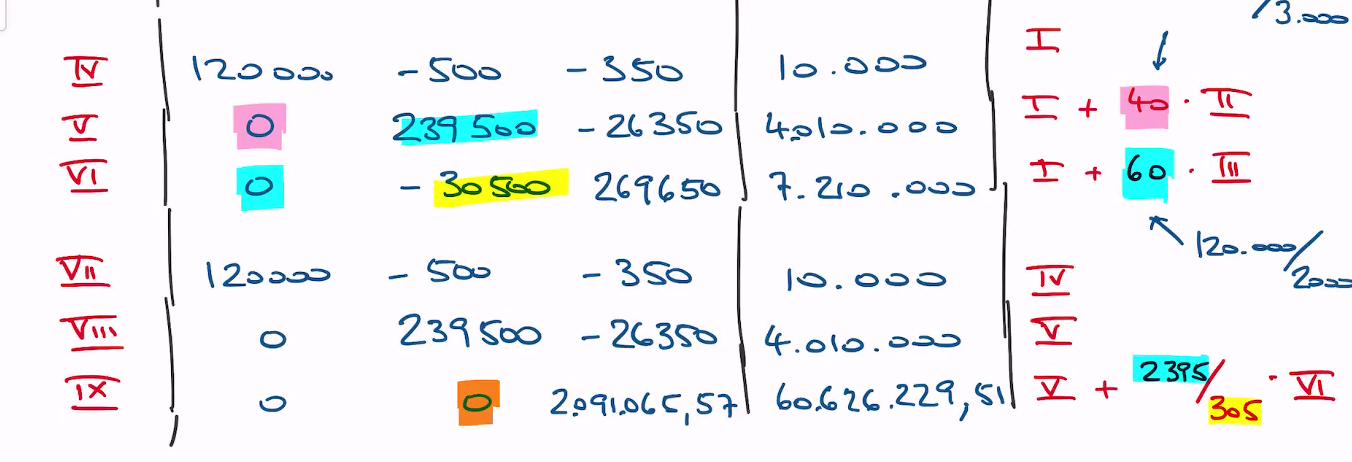 /3.000
I
IV 120000 -500 -350 10.000
V 0 239500 -26350 4.010.000 I + 40 · II
VI 0 -30500 269650 7.210.000 I + 60 · III
120.000/2000
VII 120000 -500 -350 10.000 IV
VIII 0 239500 -26350 4.010.000 V
IX 0 0 2.091.065,57 60.626.229,51 V + 2395/305 · VI